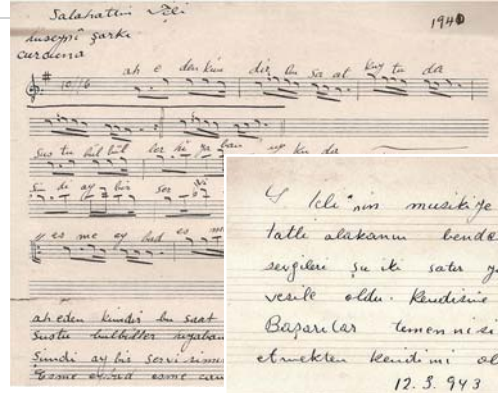 Salahattin
1940
hüseynî şarkı
curcuna
10/16
ah e den kim dir bu sa at kuy tu da
Sus tu bül bül ler hı ya ban uy ku da
Şim di ay bir ser
y es me ey bad es m
ah eden kimdir bu saat
Sustu bülbüller hıyaban
Şimdi ay bir servi simin
Esme ey bad esme can
nin musikiye
tatlı alakanın bende
sevgileri şu iki satır y
vesile oldu. Kendisine
Başarılar temennisi
etmekten kendimi al
12.3.943